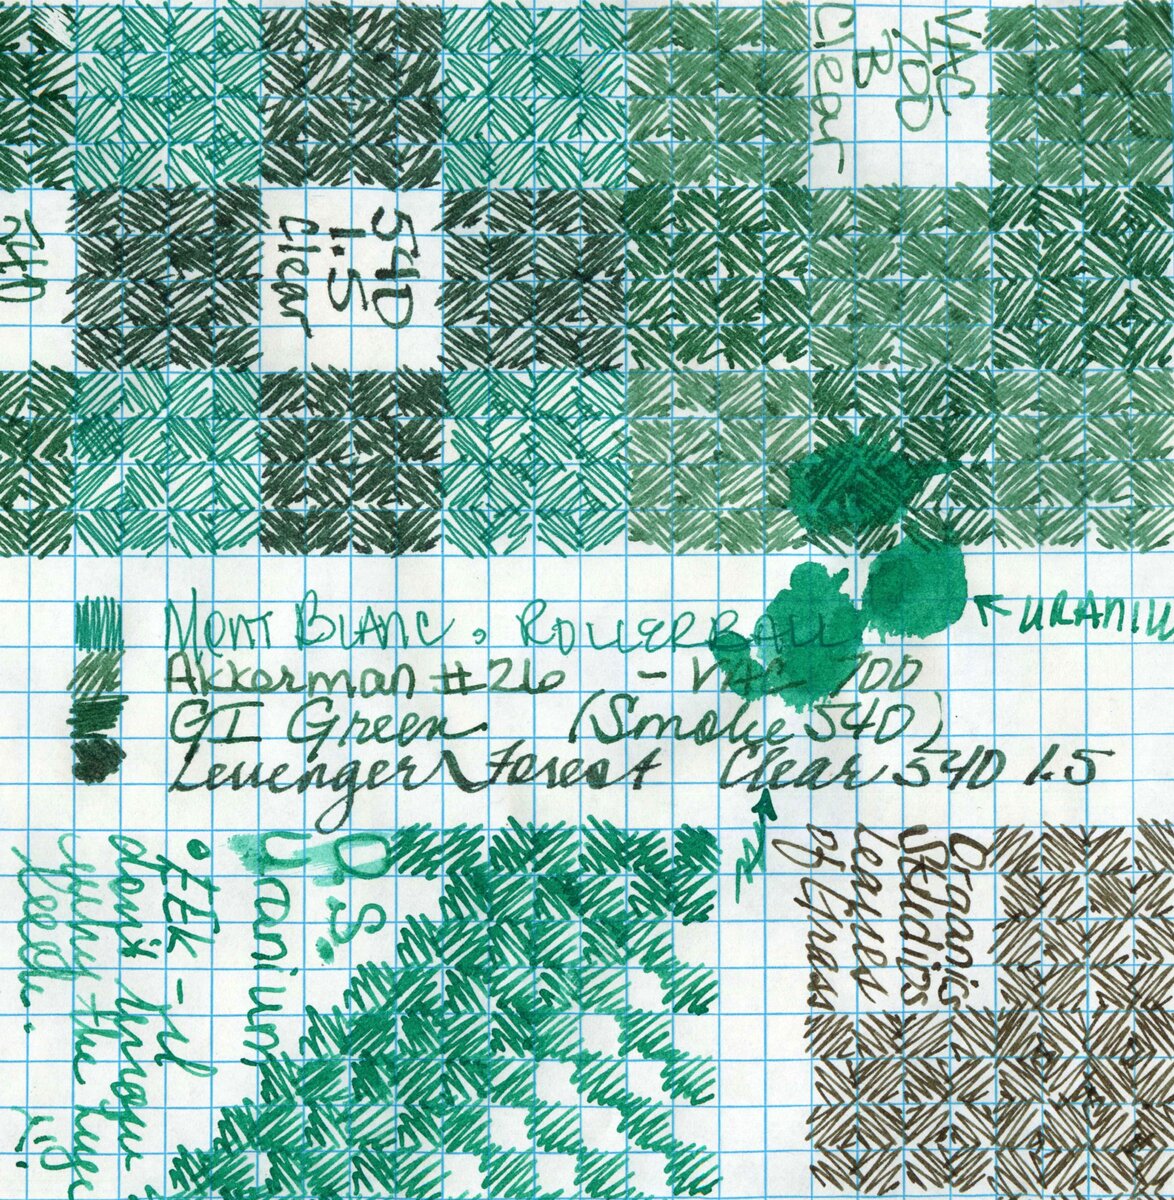 VAC
700
B
Clear
540
1.5
Clear
540
← URANIU
MONT BLANC. ROLLERBALL
Akkerman #26 - VAC 700
GI Green (Smoke 540)
Levenger Forest Clear 540 1.5
O.S.
Uranium
Eek -
don't
why the huge
Organics
Studios
Leaves
of Grass